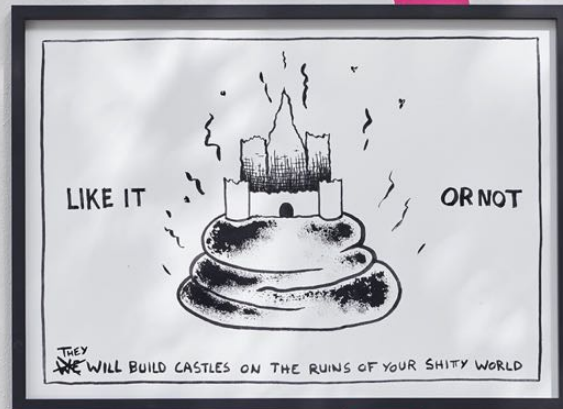 LIKE IT
OR NOT
THEY
WE WILL BUILD CASTLES ON THE RUINS OF YOUR SHITTY WORLD